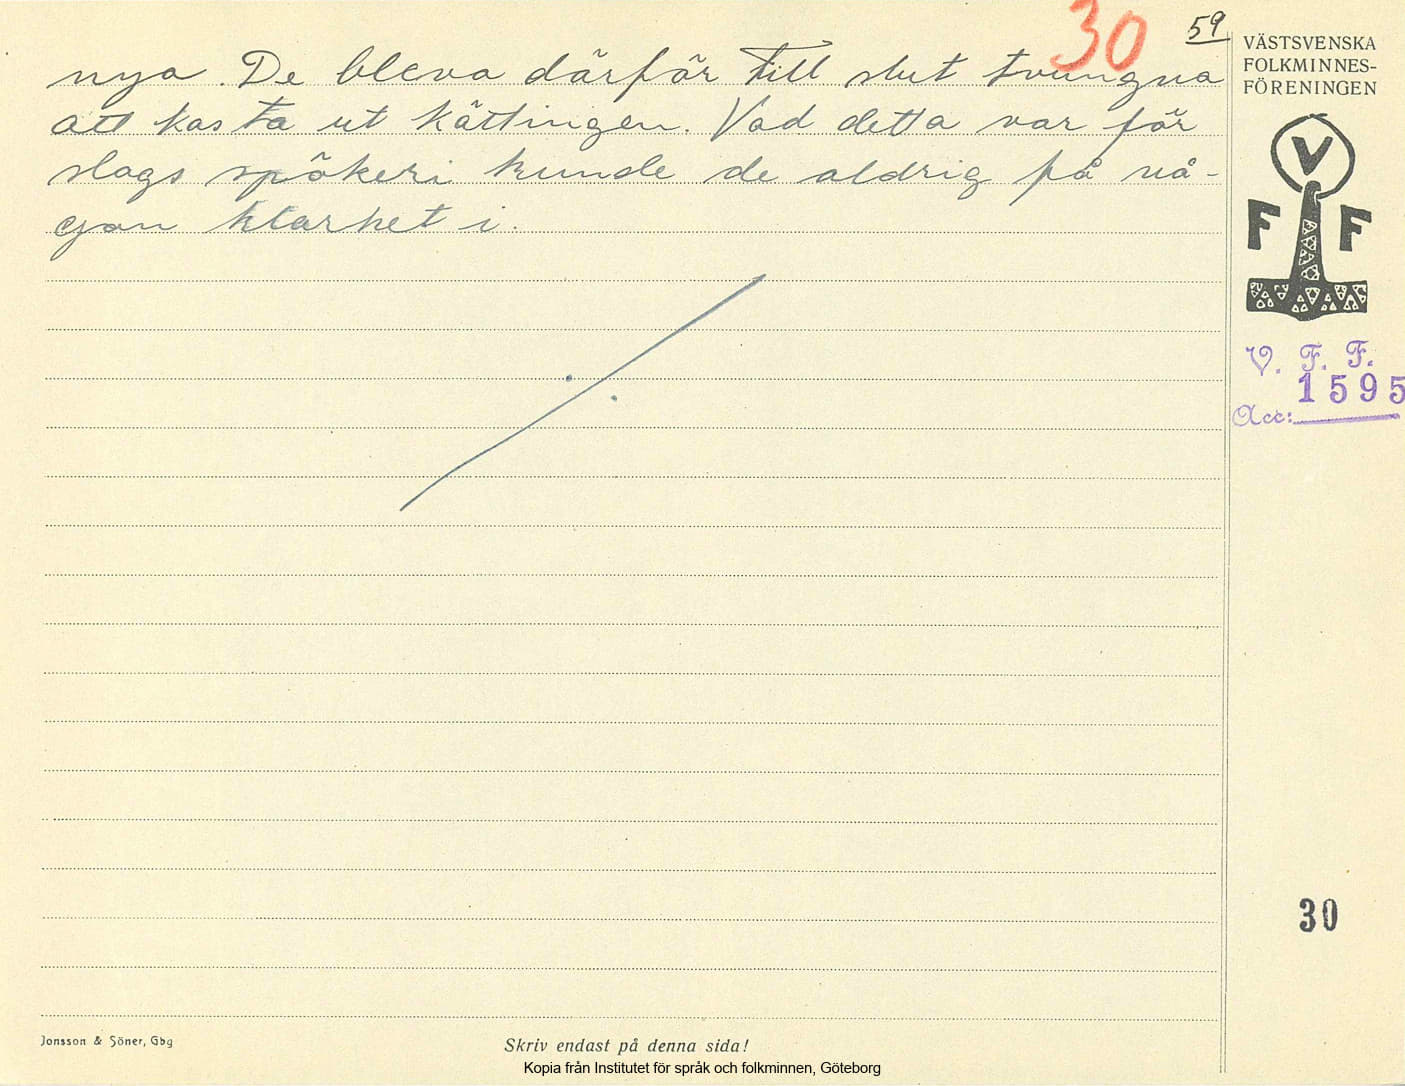 30
59
nya. De bleva därför till slut tvungna
att kasta ut kättingen. Vad detta var för
slags spökeri kunde de aldrig få nå-
gon klarhet i.
VÄSTSVENSKA
FOLKMINNES-
FÖRENINGEN
V
F F
V. F. F.
1595
Acc:
30
Jonsson & Söner, Gbg
Skriv endast på denna sida!
Kopia från Institutet för språk och folkminnen, Göteborg